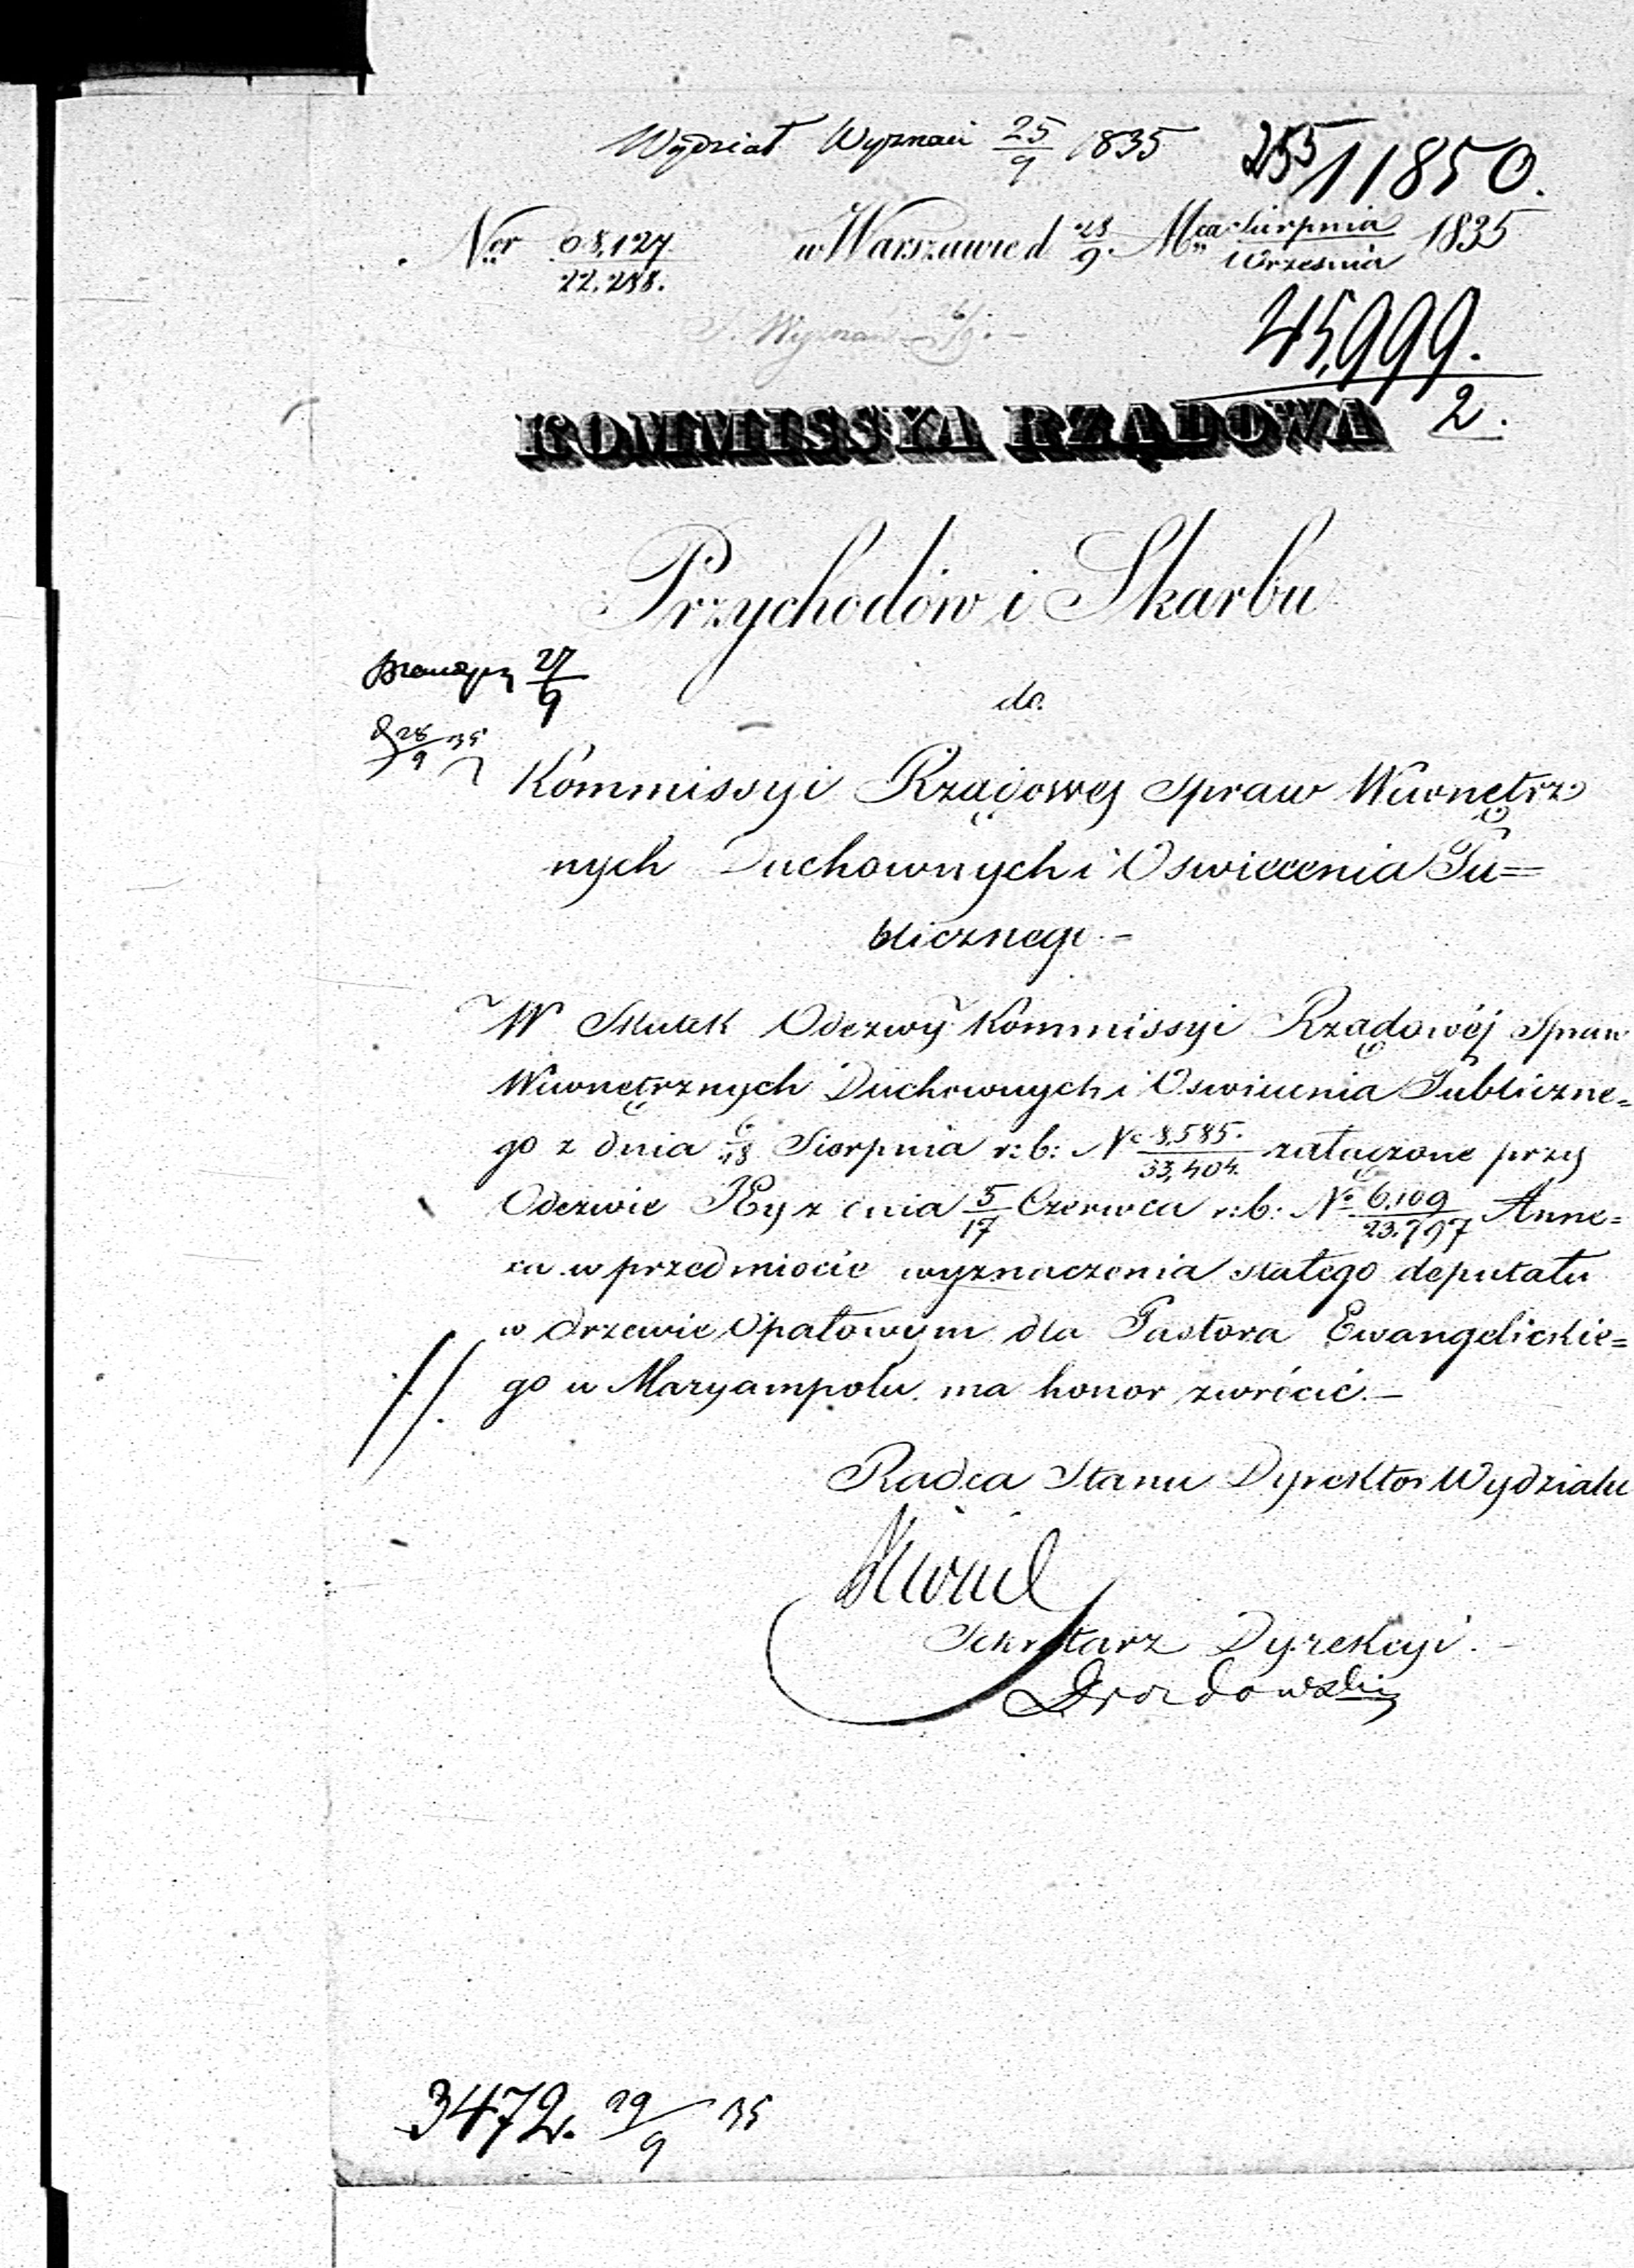 Wydział Wyznań 25/9 1835
255 11850.
Ner 68,127/22.288. w Warszawie d 28/9. Mca Sierpnia/Września 1835
45,999./2.
KOMMISSYA RZĄDOWA
Przychodów i Skarbu
27/9
do
28/9 35
Kommissyi Rządowey Spraw Wewnętrz
nych Duchownych i Oswiecenia Pu=
blicznego.-
W Skutek Odezwy Kommissyi Rządowéj Spraw
Wewnętrznych Duchownych i Oswiecenia Publiczne=
go z dnia 6/18 Sierpnia r: b: No 8,585./33,404. załączone przy
Odezwie Jéy z dnia 5/17 Czerwca r: b: No 6,109/23.797 Anne=
xa w przedmiocie wyznaczenia stałego deputatu
w drzewie Opałowym dla Pastora Ewangelickie=
go w Maryampolu ma honor zwrócić.-
Radca Stanu Dyrektor Wydziału
Sekretarz Dyrekcyi.-
Drozdowski
3472. 29/9 35